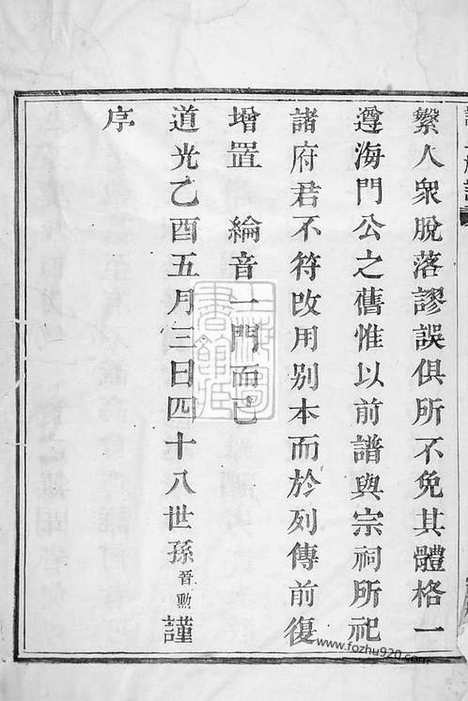 繁人衆脫落謬誤俱所不免其體格一
遵海門公之舊惟以前譜與宗祠所祀
諸府君不符改用別本而於列傳前復
增置 綸音一門而已
道光乙酉五月三日四十八世孫晉勳謹
序
www.fozhu920.com